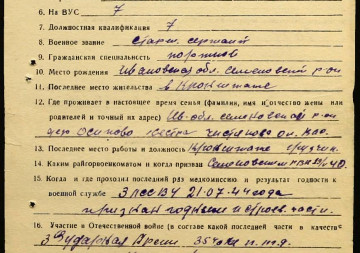 6. На ВУС 7
7. Должностная квалификация 7
8. Военное звание старш. сержант
9. Гражданская специальность портной
10. Место рождения Ивановская обл. Семеновский р-он
11. Последнее место жительства в Кронштате
12. Где проживает в настоящее время семья (фамилия, имя и отчество жены или
родителей и точный их адрес) Ив. обл. Семеновский р-он
дер Осипово сестра
13. Последнее место работы и должность Кронштате
14. Каким райгорвоенкоматом и когда призван Семеновским РВК 40
15. Когда и где проходил последний раз медкомиссию и результат годности к
военной службе 3 ЛССВУ 21.07.44 года
признан годным к строев. части.
16. Участие в Отечественной войне (в составе какой последней части в качест
3 Ударная Армия